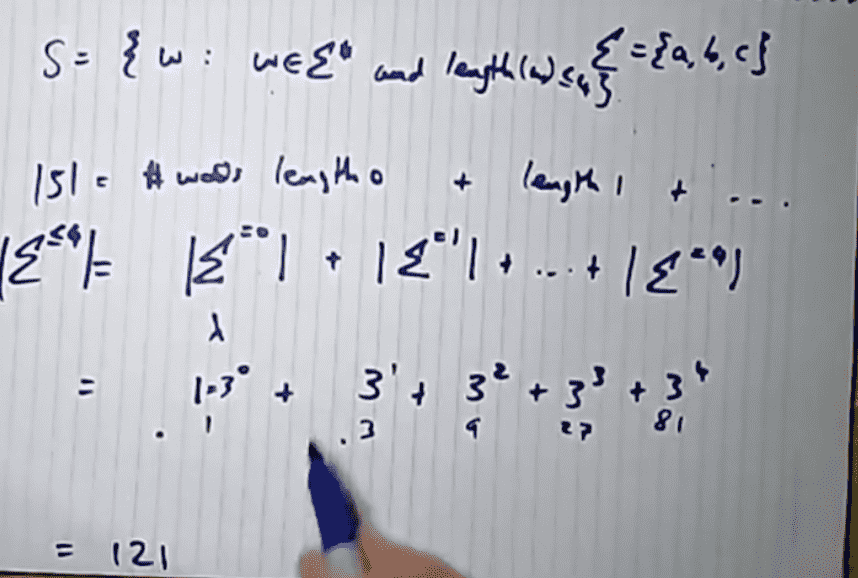 S = { w : w ∈ Σ* and length(w) ≤ 4} Σ = {a, b, c}
|S| = # words length 0 + length 1 + ....
|Σ^≤4| = |Σ^=0| + |Σ^=1| + ... + |Σ^=4|
λ
= 1=3^0 + 3^1 + 3^2 + 3^3 + 3^4
1 3 9 27 81
= 121